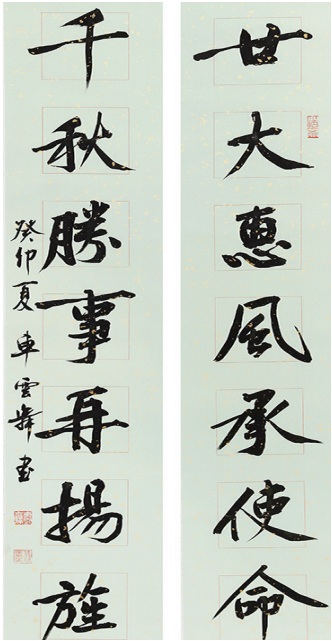 廿大惠風承使命
千秋勝事再揚旌
癸卯夏車雲書